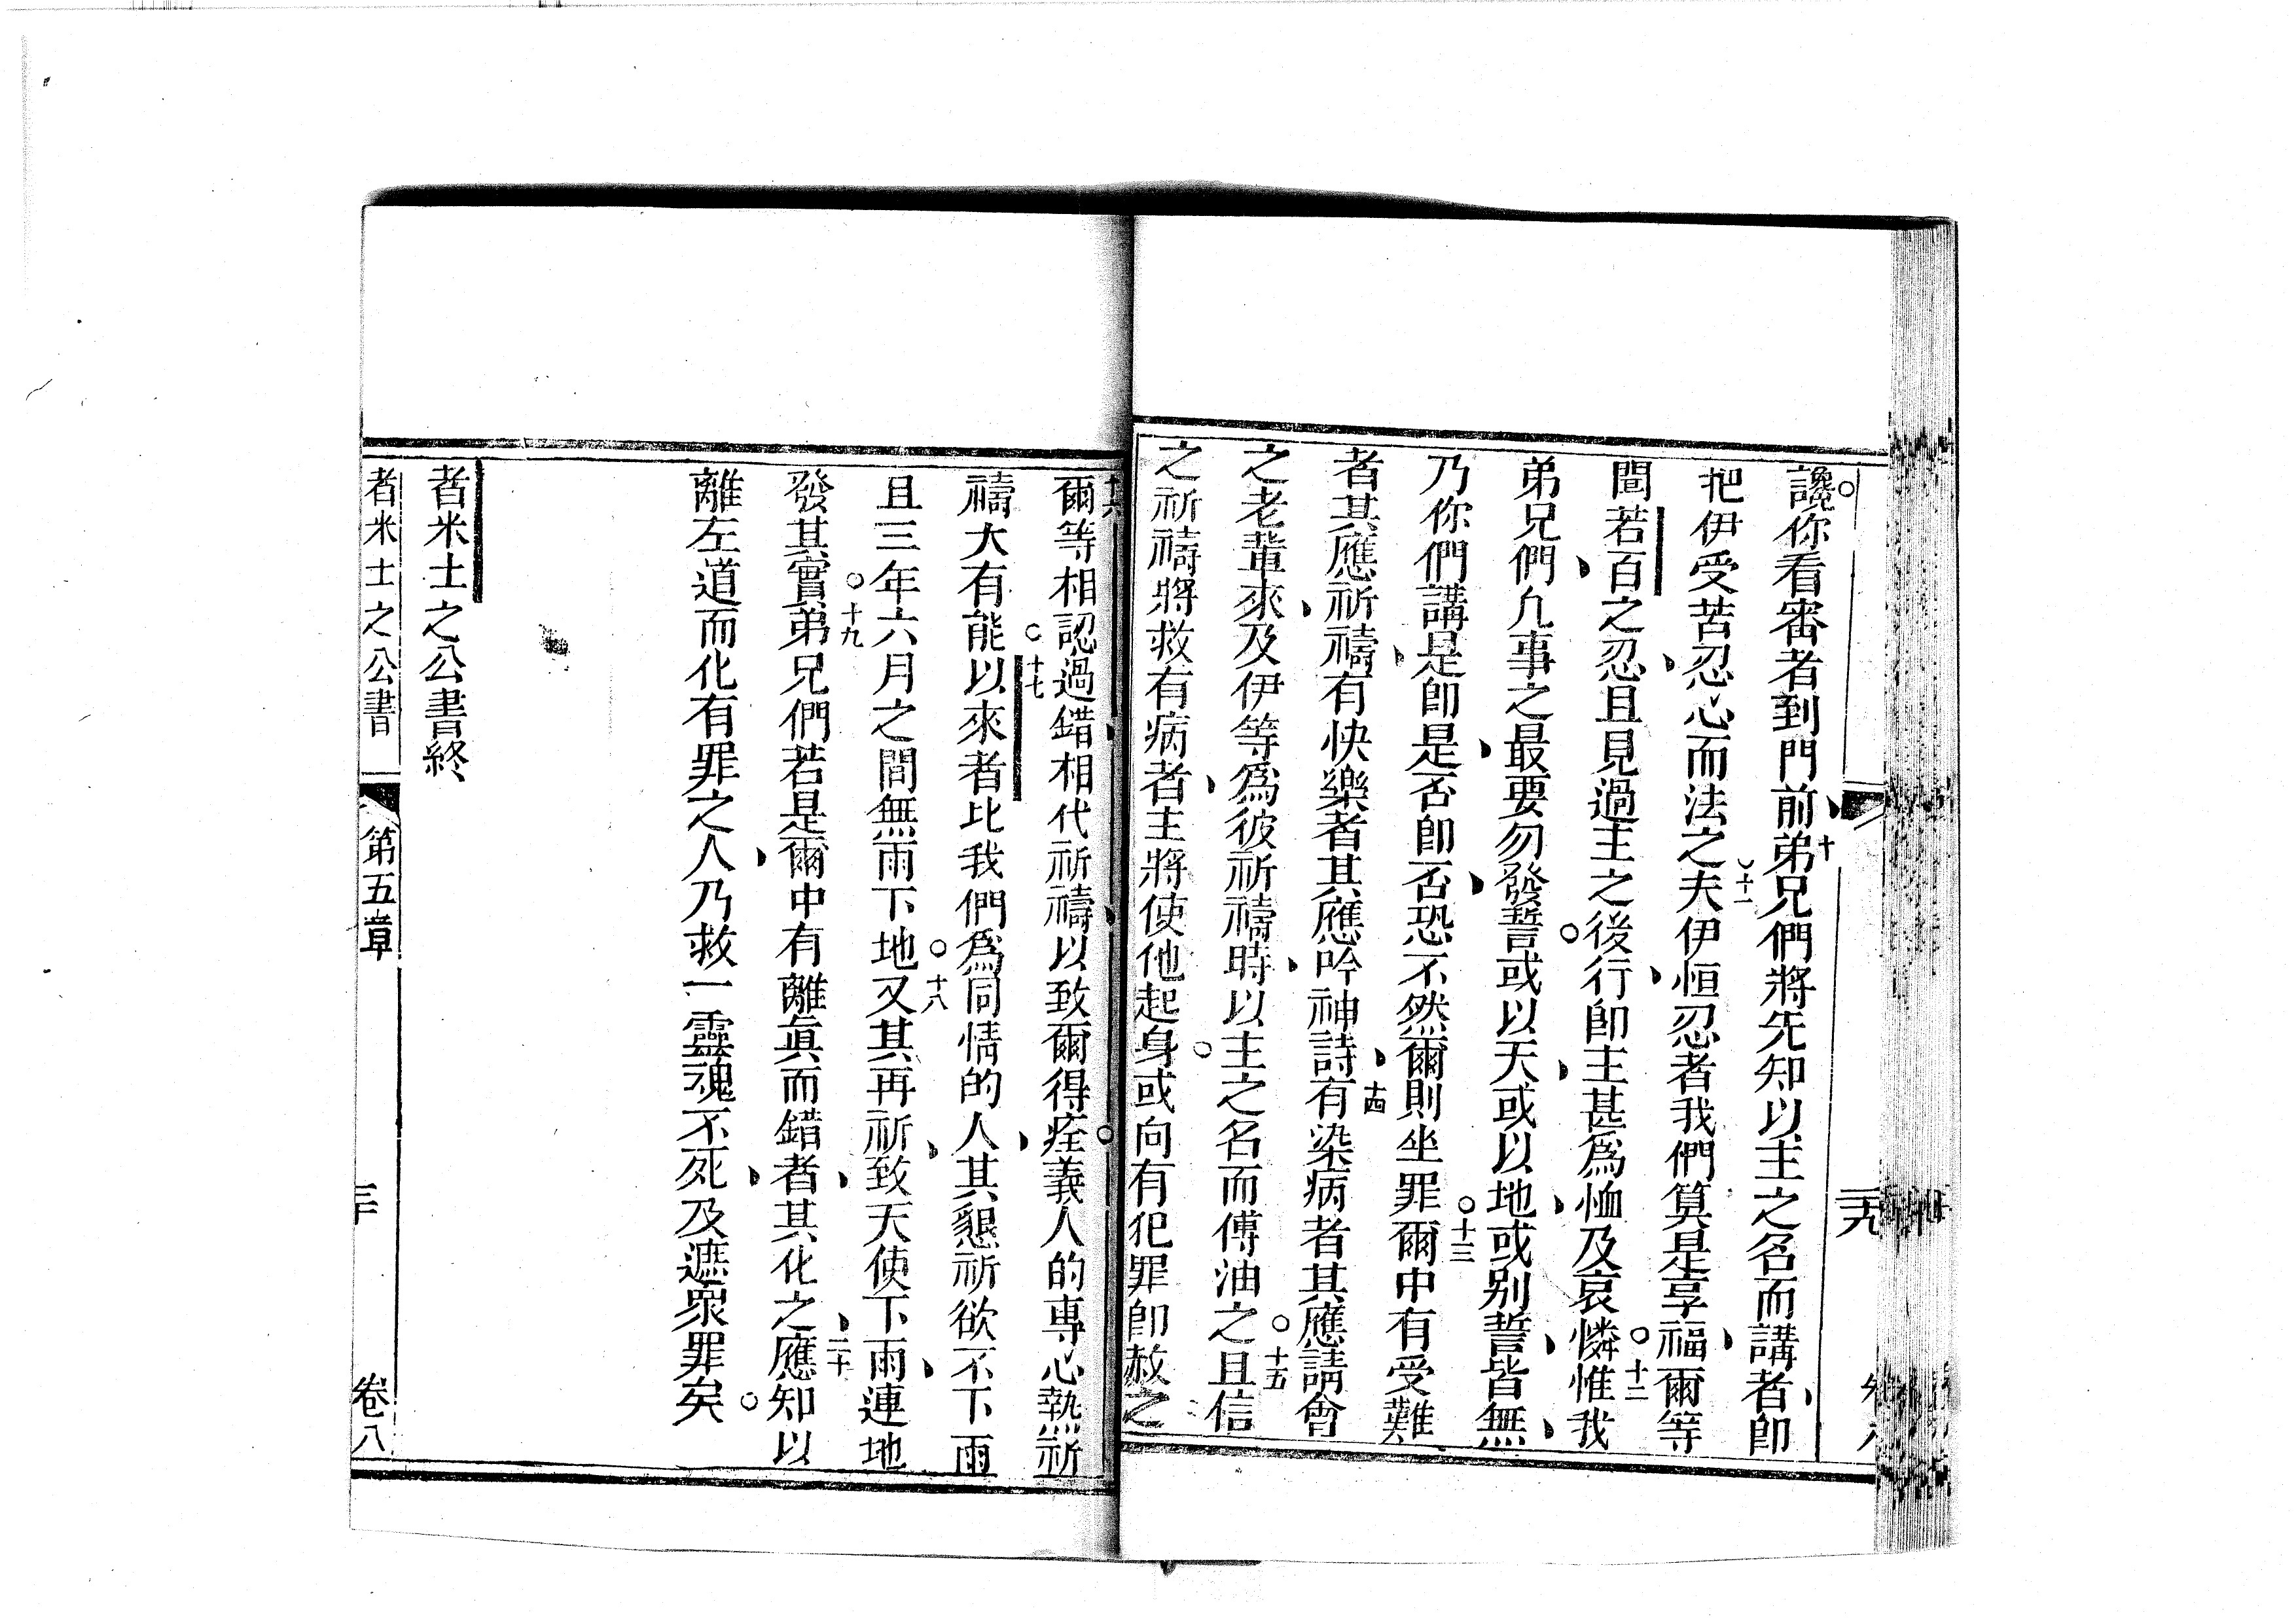 讒你看審者到門前十弟兄們將先知以主之名而講者卽
把伊受苦忍心而法之十一夫伊恒忍者我們算是享福爾等
聞若百之忍且見過主之後行卽主甚爲恤及哀憐十二惟我
弟兄們凢事之最要勿發誓或以天或以地或别誓皆無
乃你們講是卽是否卽否恐不然爾則坐罪十三爾中有受難
者其應祈禱有快樂者其應吟神詩十四有染病者其應請會
之老輩來及伊等爲彼祈禱時以主之名而傅油之十五且信
之祈禱將救有病者主將使他起身或向有犯罪卽赦之
十六爾等相認過錯相代祈禱以致爾得痊義人的專心執𤍠祈
禱大有能十七以來者比我們爲同情的人其懇祈欲不下雨
且三年六月之間無雨下地十八又其再祈致天使下雨連地
發其實十九弟兄們若是爾中有離眞而錯者其化之二十應知以
離左道而化有罪之人乃救一靈魂不死及遮衆罪矣
者米士之公書終
者米士之公書 第五章 三十 卷八